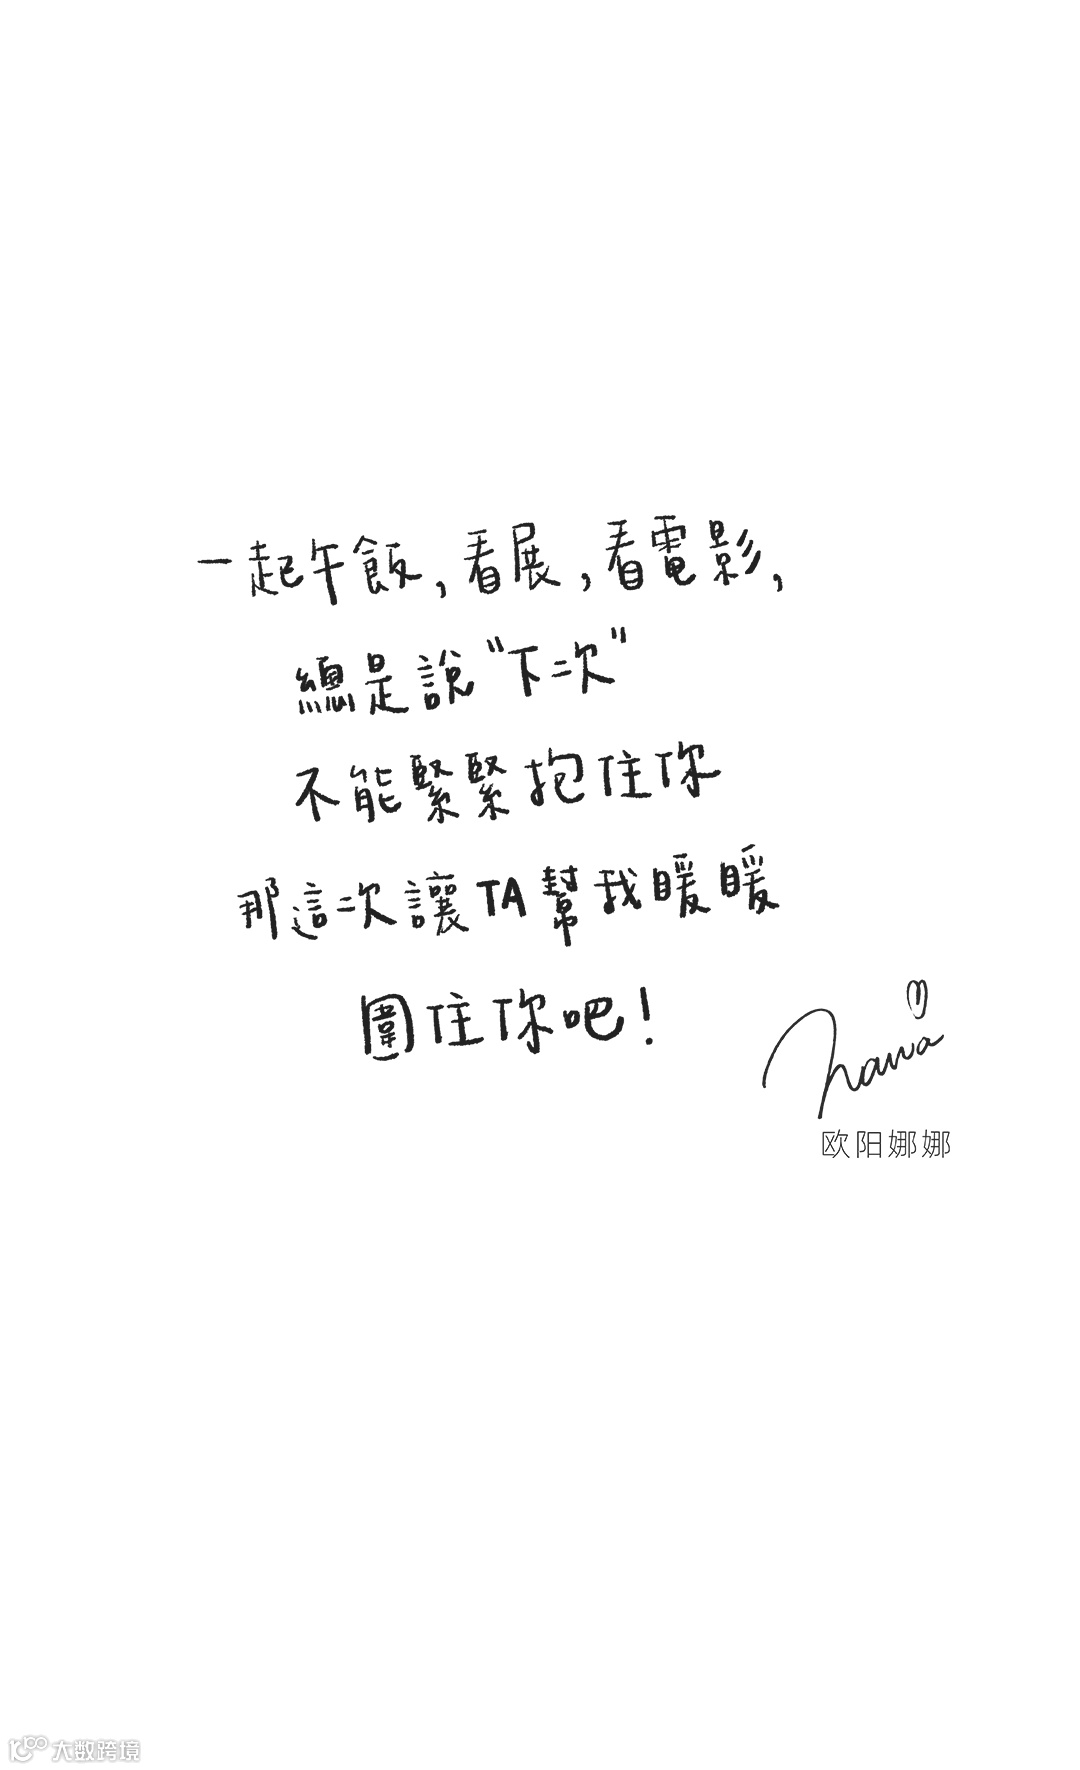 一起午飯,看展,看電影,
總是說"下次"
不能緊緊抱住你
那這次讓TA幫我暖暖
圍住你吧!
nana
欧阳娜娜
大数跨境